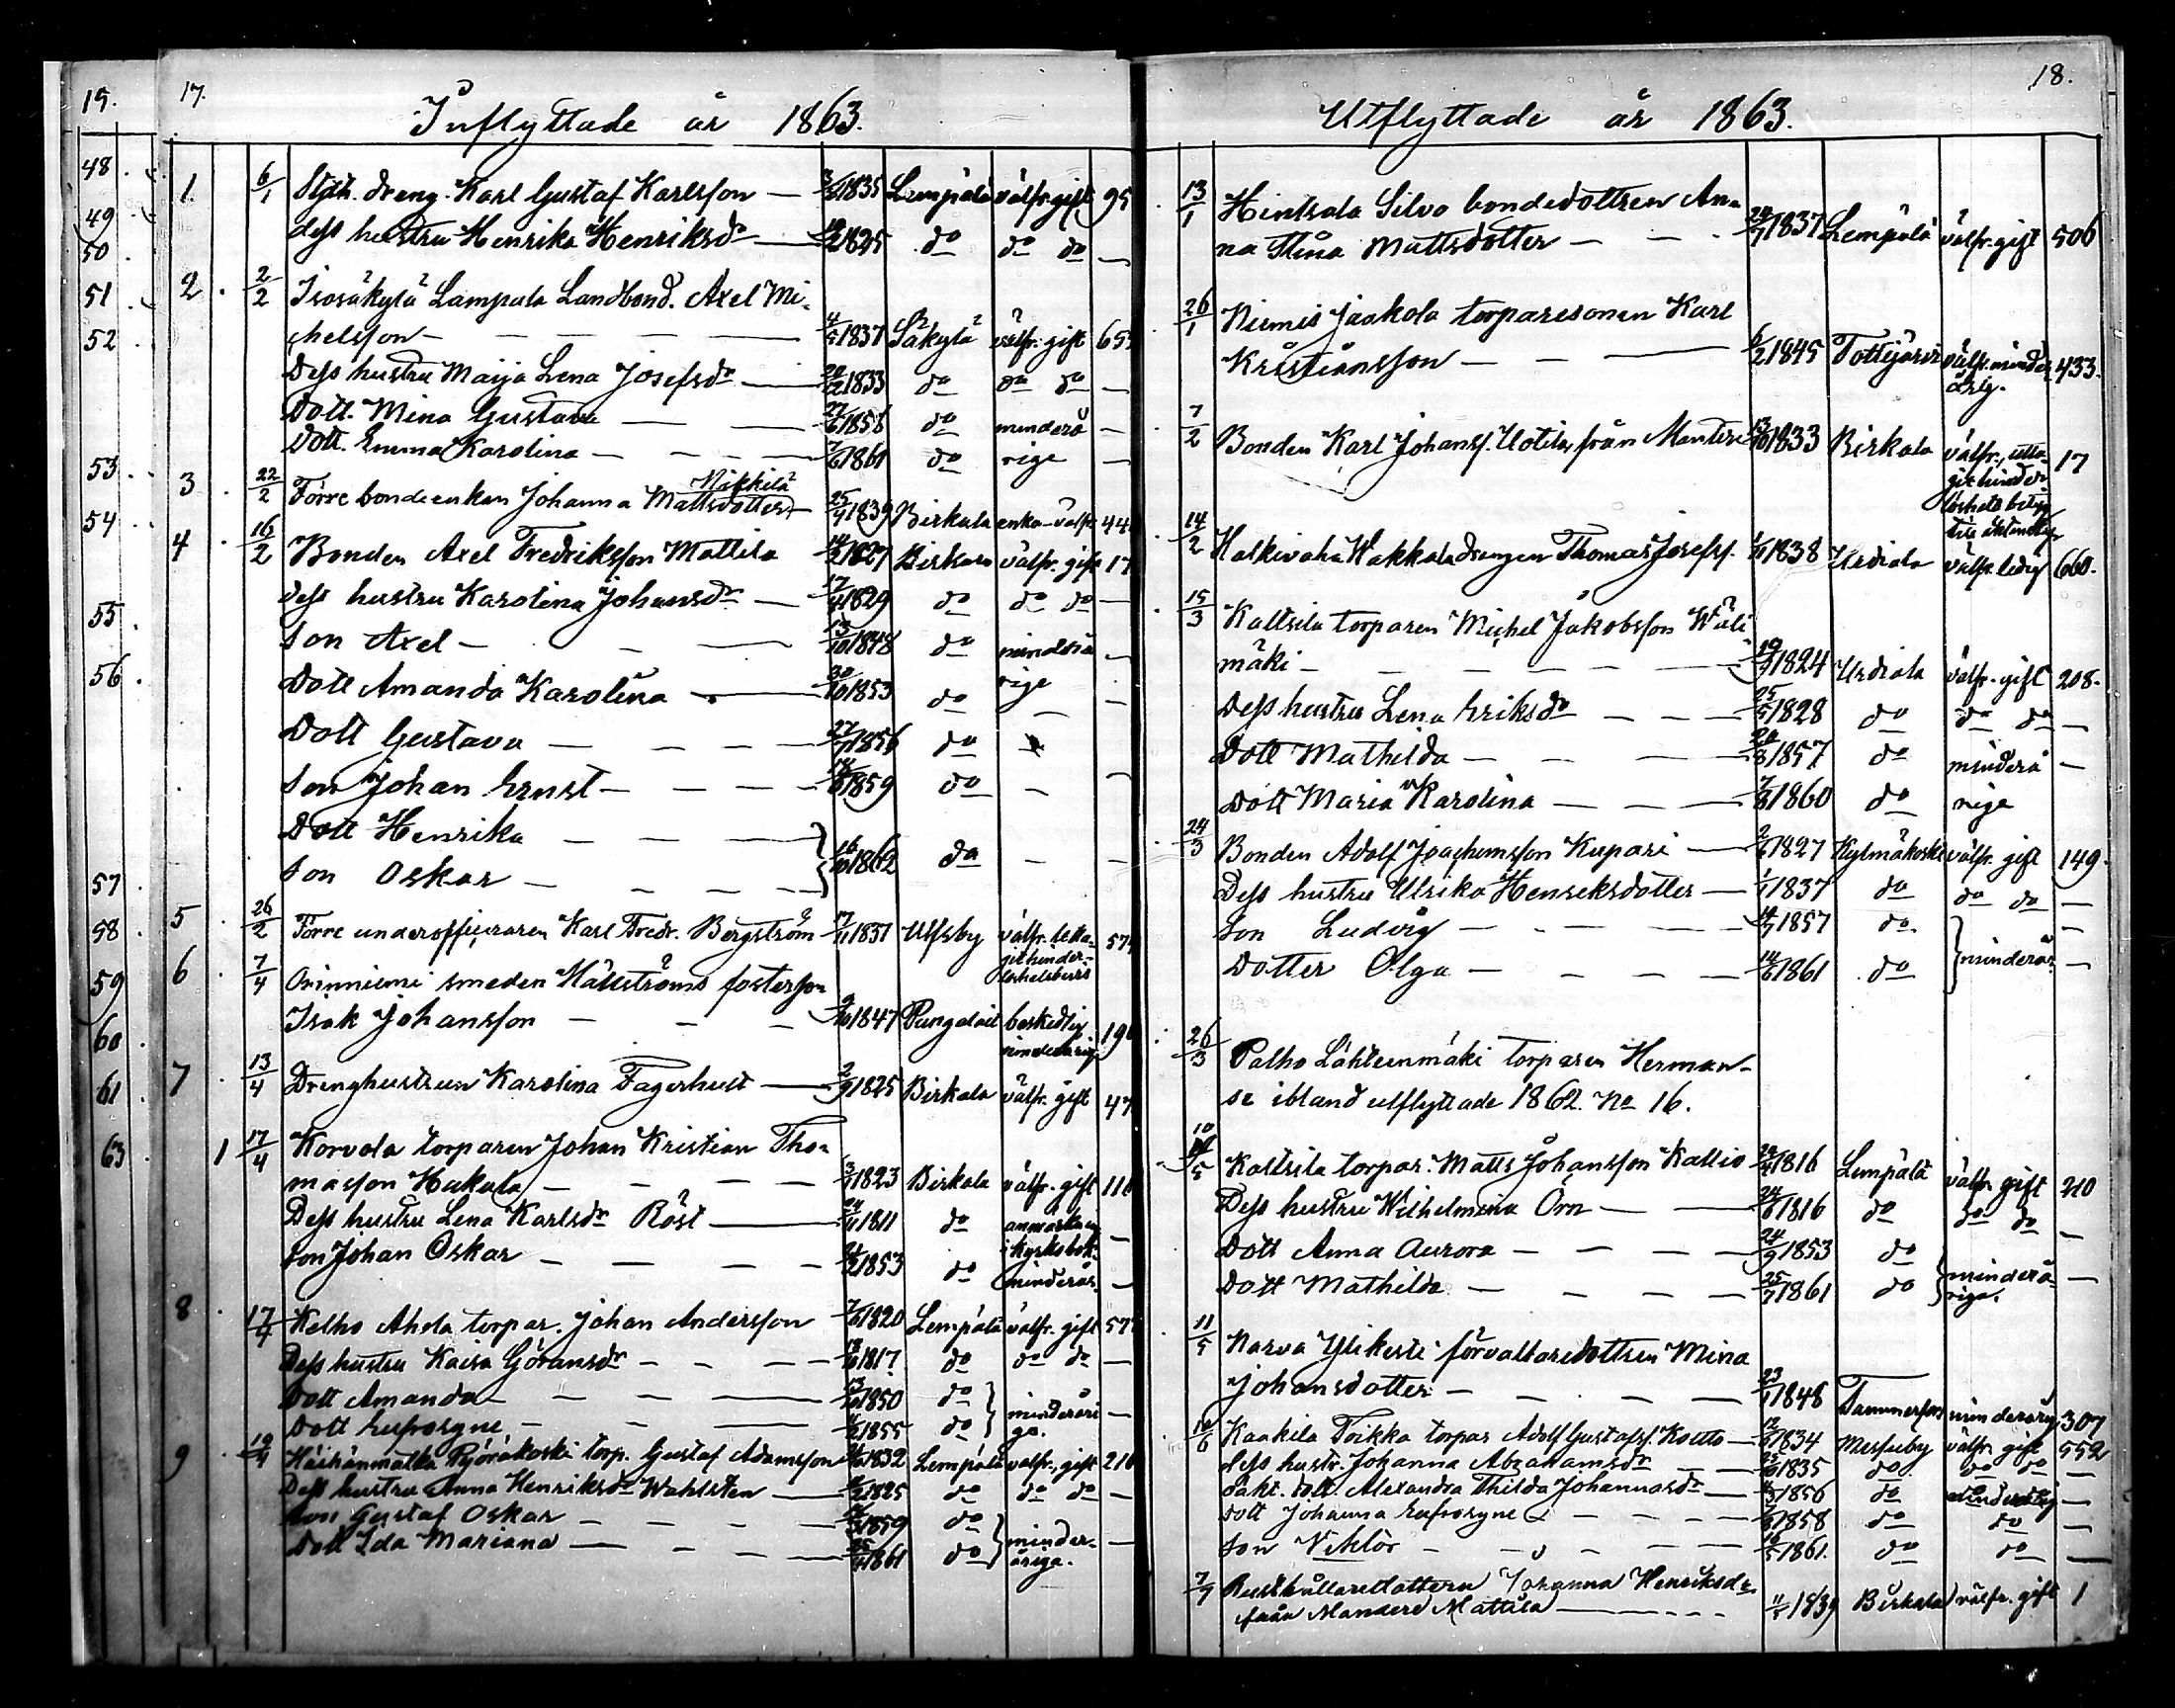 19.
48
49
50
51
52
53
54
55
56
57
58
59
60
61
63
17.
Inflyttade år 1863.
1. 6/1 dräng. Karl Gustaf Karlsson 1835 Lempälä välfr. gift 95
dess hustru Henrika Henriksdr 1825 do do do
2. 2/2 Isosäkylä Lampala Landbond. Axel Mi-
chelsson 1837 Säkylä välfr. gift
Dess hustru Maija Lena Josefsdr 1833 do do do
Dott. Mina Gustava do minderå
Dott. Emma Karolina 1861 do rige
3. 22/2 Förre bondeenkan Johanna Mattsdotter Mikkilä 25/4 1839 Birkala enka välfr. 44
4. 16/2 Bonden Axel Fredriksson Mattila 1827 Birkala välfr. gift 17
dess hustru Karolina Johansdr 1829 do do do
son Axel 13/10 1848 do minderå
Dott Amanda Karolina 30/10 1853 do rige
Dott Gustava 27/7 1856 do
Son Johan Ernst 1859 do
Dott Henrika
Son Oskar 16/10 1862 do
5 26/2 Förre underofficeraren Karl Fredr. Bergström 1831 Ulfsby välfr. utta-
git hinder-
löshetsbevis
6. 7/4 smeden Hällströms fosterson
Isak Johansson 1847 beskedlig 190
minderårig
7. 13/4 Drenghustrun Karolina Fagerhult 2/9 1825 Birkala välfr. gift 47
1 17/4 Korvola torparen Johan Kristian Tho-
masson Hakala 1823 Birkala välfr. gift
Dess hustru Lena Karlsdr Röst 1811 do anmärkning
i kyrkobok.
son Johan Oskar 1853 do minderår.
8. 17/4 Kelho Ahola torpar. Johan Andersson 1820 Lempälä välfr. gift 57
Dess hustru Kaisa Göransdr 1817 do do do
Dott Amanda 1850 do minderåri
Dott Eufrosyne 1855 do ga.
9 Torp. Gustaf Adamsson 1832 Lempälä välfr. gift 216
Dess hustru Anna Henriksdr Wahlsten 1825 do do do
son Gustaf Oskar 1859 do minder-
Dott Ida Mariana 1861 do åriga.
18.
Utflyttade år 1863.
13/1 Hintsala Silvo bondedottren An-
na Stina Mattsdotter 1837 Lempälä välfr. gift 506
26/1 Niemis Jaakola torparesonen Karl
Kristiansson 6/2 1845 Tottijärvi välfr. minder 433.
årig.
7/2 Bonden Karl Johanss. Uotila från Mantere 1833 Birkala välfr., utta- 17
git hinder-
löshets betyg
till äktenskap
14/2 Halkivaha Wakkala drängen Thomas Josefss. 1838 Urdiala välfr. ledig 660.
15/3 Kaltsila torparen Michel Jakobsson Wäli
mäki 1824 Urdiala välfr. gift 208.
Dess hustru Lena Eriksdr 1828 do do do
Dott Mathilda 20/8 1857 do minderå
Dott Maria Karolina 1860 do rige
24/3 Bonden Adolf Joachemsson Kupari 1827 Kylmäkoski välfr. gift 149.
Dess hustru Ulrika Henriksdotter 1837 do do do
Son Ludvig 1857 do
Dotter Olga 1861 do minderår.
26/3 Palho Lähteenmäki torparen Herman-
se ibland utflyttade 1862. No 16.
10/5 Kaltsila torpar. Matts Johansson Kallio 1816 Lempälä välfr. gift 210
Dess hustru Wilhelmina Örn 1816 do do do
Dott Anna Aurora 24/9 1853 do minderå-
Dott Mathilda 25/7 1861 do riga.
11/5 Narva Ylikesti förvaltaredottren Mina
Johansdotter 1848 Tammerfors minderårig 307
Kaakila Toikka torpar Adolf Gustafss. Koitto 1834 Messuby välfr. gift 552
dess hustr. Johanna Abrahamsdr 1835 do do do
oäkt. dott. Alexandra Thilda Johannasdr 1856 do minderårig
dott Johanna Eufrosyne 1858 do do
son Viktor 1861. do do
Rusthållaredottern Johanna Henriksdr
från Mandere Mattila 1839 Birkala välfr. gift 1